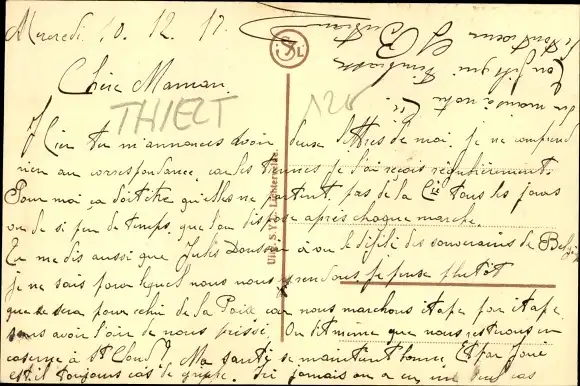 Mercredi 10. 12. 17.
Chère Maman.
THIELT
Hier tu m'annonces avoir deux lettres de moi, je ne comprend
rien au correspondance, car les tiennes je l'ai reçois régulièrement.
Pour moi ça doit être qu'elles ne partent pas de la Cie tous les jours
ou de si peu de temps, que l'on dispose après chaque marche.
Tu me dis aussi que Jules Dousson à vu le défilé des souverains de Belgique
je ne sais pour lequel nous nous rendons, je pense plutôt
que ce sera pour celui de la Paix car nous marchons étape par étape
sans avoir l'air de nous pressé. On dit même que nous restirons en
caserne à St Cloud? Ma santé se maintient bonne. Et par
est il toujours cas de grippe. Ici jamais on a eu un seul cas
Uitg. S.V. Lichtervelde.
Ton fils qui t'embrasse